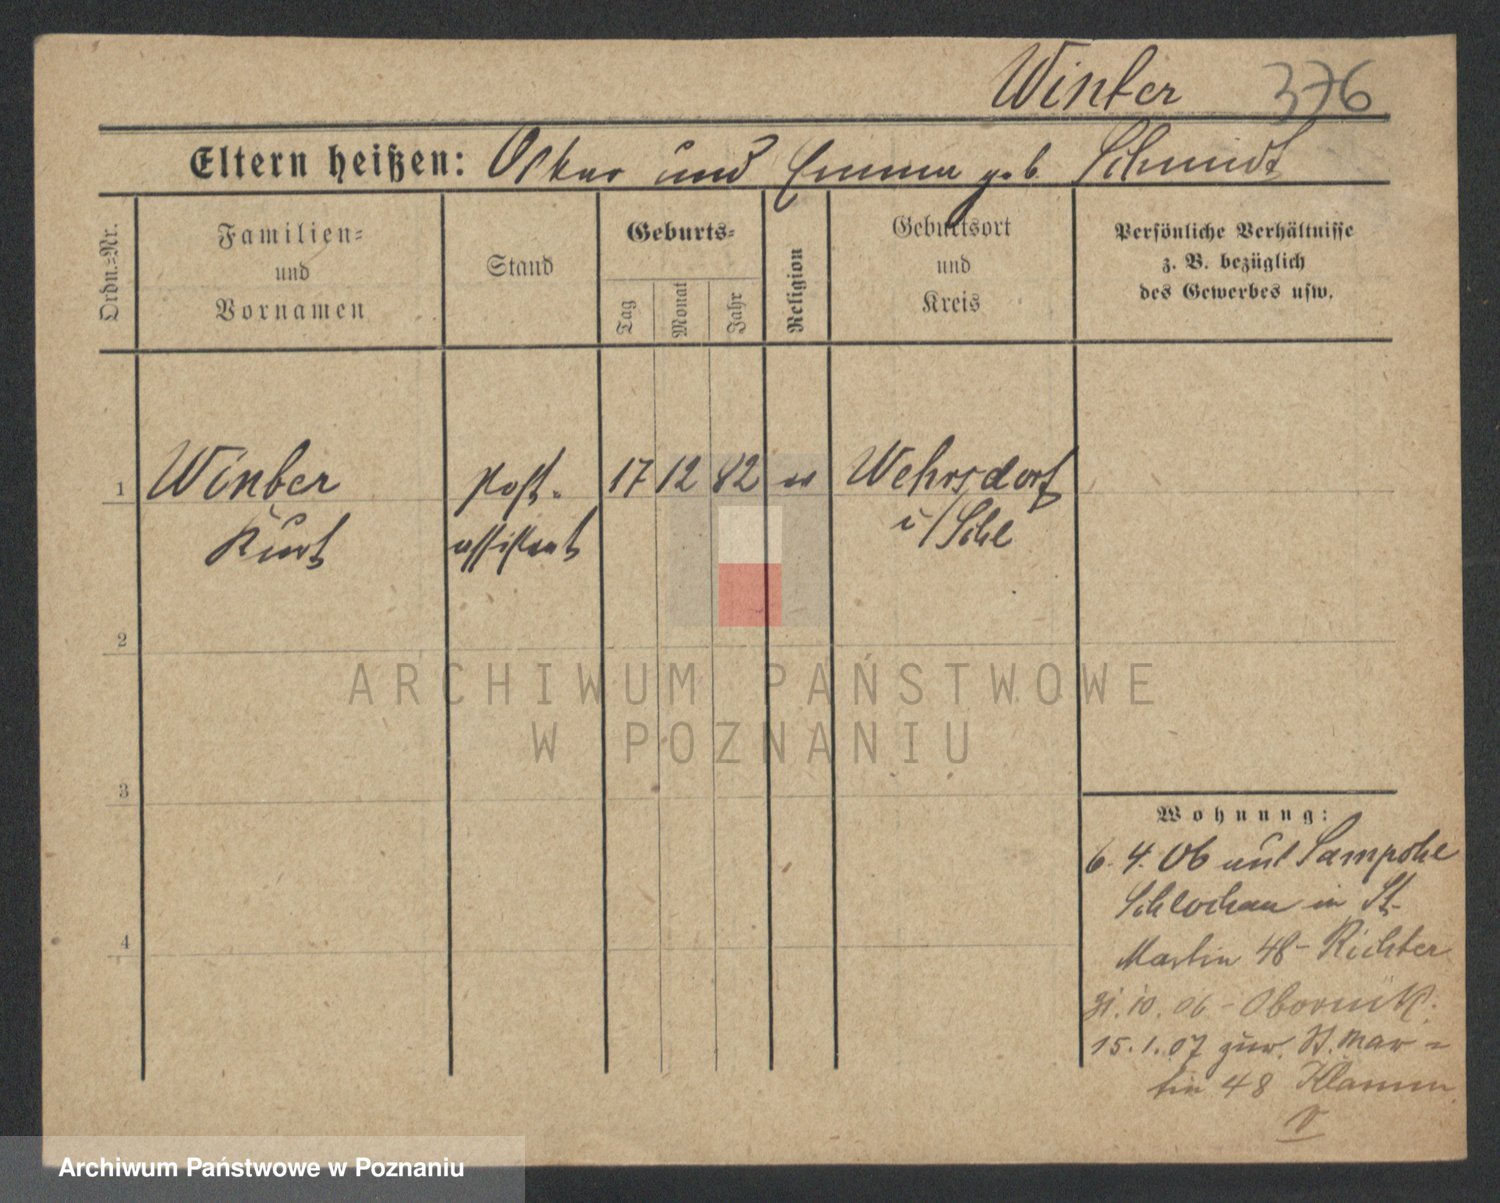 Winter 376
Eltern heißen: Oskar und Emma geb Schmidt
Ordn.-Nr.
Familien-
und
Vornamen
Stand
Geburts-
Tag
Monat
Jahr
Religion
Geburtsort
und
Kreis
Persönliche Verhältnisse
z. B. bezüglich
des Gewerbes usw.
1 Winter Post- 17 12 82 Wehrsdorf
Kurt assistent i/Schl
2
3
4
Wohnung:
6. 4. 06 aus Sampohl
Schlochau in St.
Martin 48 - Richter
31. 10. 06 - Obornik.
15. 1. 07 zur. St. Mar-
tin 48 Klamm
ARCHIWUM PAŃSTWOWE
W POZNANIU
Archiwum Państwowe w Poznaniu